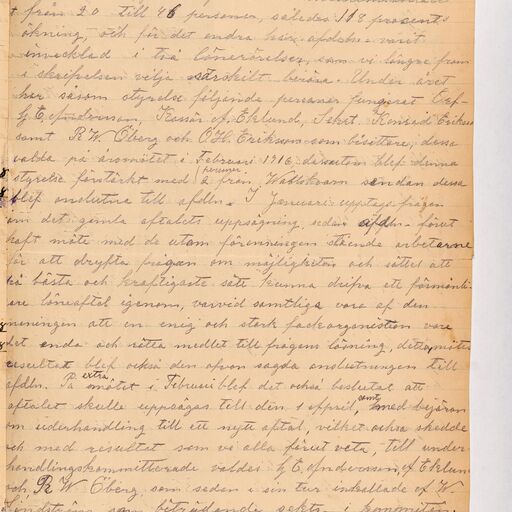 från 20 till 46 personer, således 118 procents
ökning, och för det andra har afdeln. varit
invecklad i två lönerörelser, som vi längre fram
i skrifvelsen vilja särskilt beröra. Under året
har såsom styrelse följande personer fungerat Ord-
G. E. Andersson, Kassör Eklund, Sekt. Konrad Erikson
samt R W Öberg och O H. Erikson som bisittare, dessa
valda på årsmötet i Februari 1916 dessutom blef denna
styrelse förstärkt med 2 personer från Wattsbvarn sedan dessa
blef anslutna till afdln. I Januari upptogs frågan
om det gamla aftalets uppsägning, sedan afdln. förut
haft möte med de utom föreningen stående arbetarne
för att dryfta frågan om möjligheten och sättet att
på bästa och kraftigaste sätt kunna drifva ett förmånli-
are löneaftal igenom, varvid samtliga voro af den
meningen att en enig och stark fackorganisation vore
det enda och rätta medlet till frågans lösning, detta mötes
resultat blef också den ofvan sagda anslutningen till
afdln. På extra mötet i Februari blef det också beslutat att
aftalet skulle uppsägas till den 1 April, samt med begäran
om underhandling till ett nytt aftal, vilket också skedde
och med resultat som vi alla förut veta, till under-
handlingskommitterade valdes G. E. Andersson, Eklund
och R W Öberg, som sedan i sin tur inkallade W.
Lindström som beträdande sekr. i kommitén.